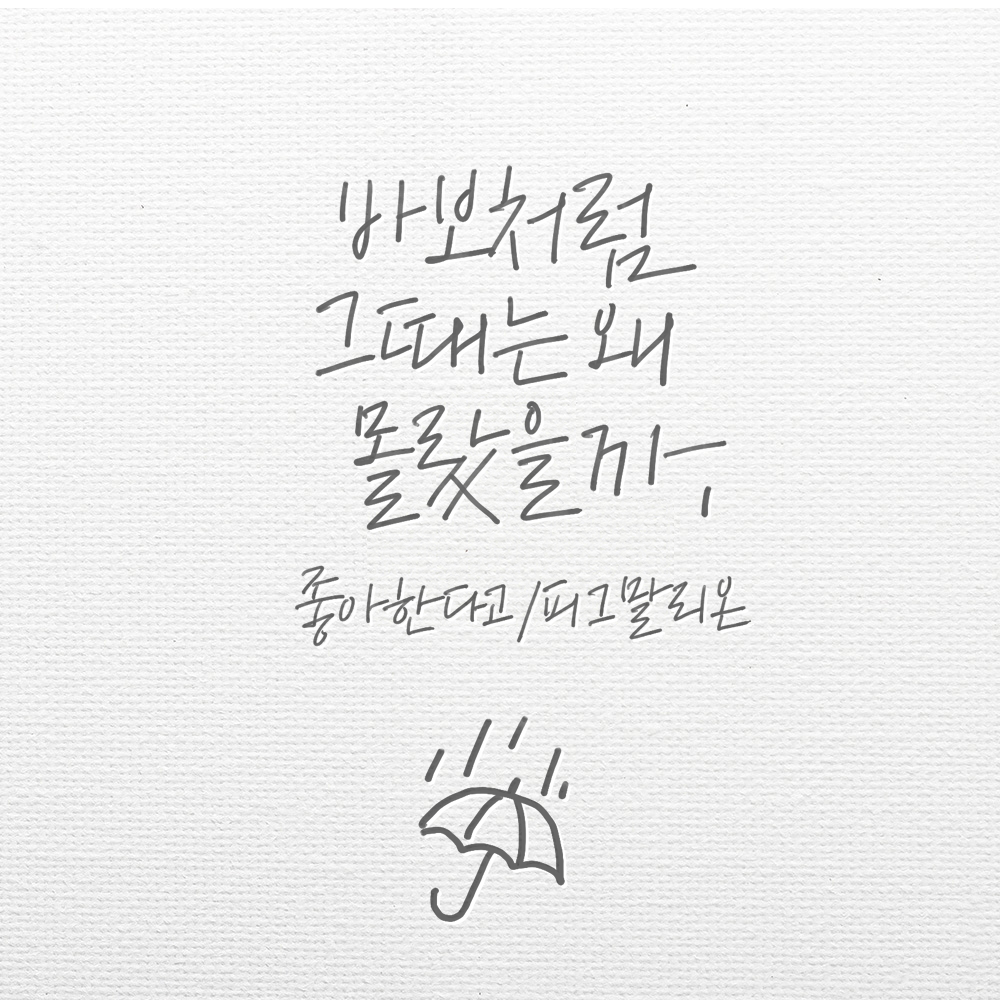 바보처럼
그때는 왜
몰랐을까,
좋아한다고/피그말리온